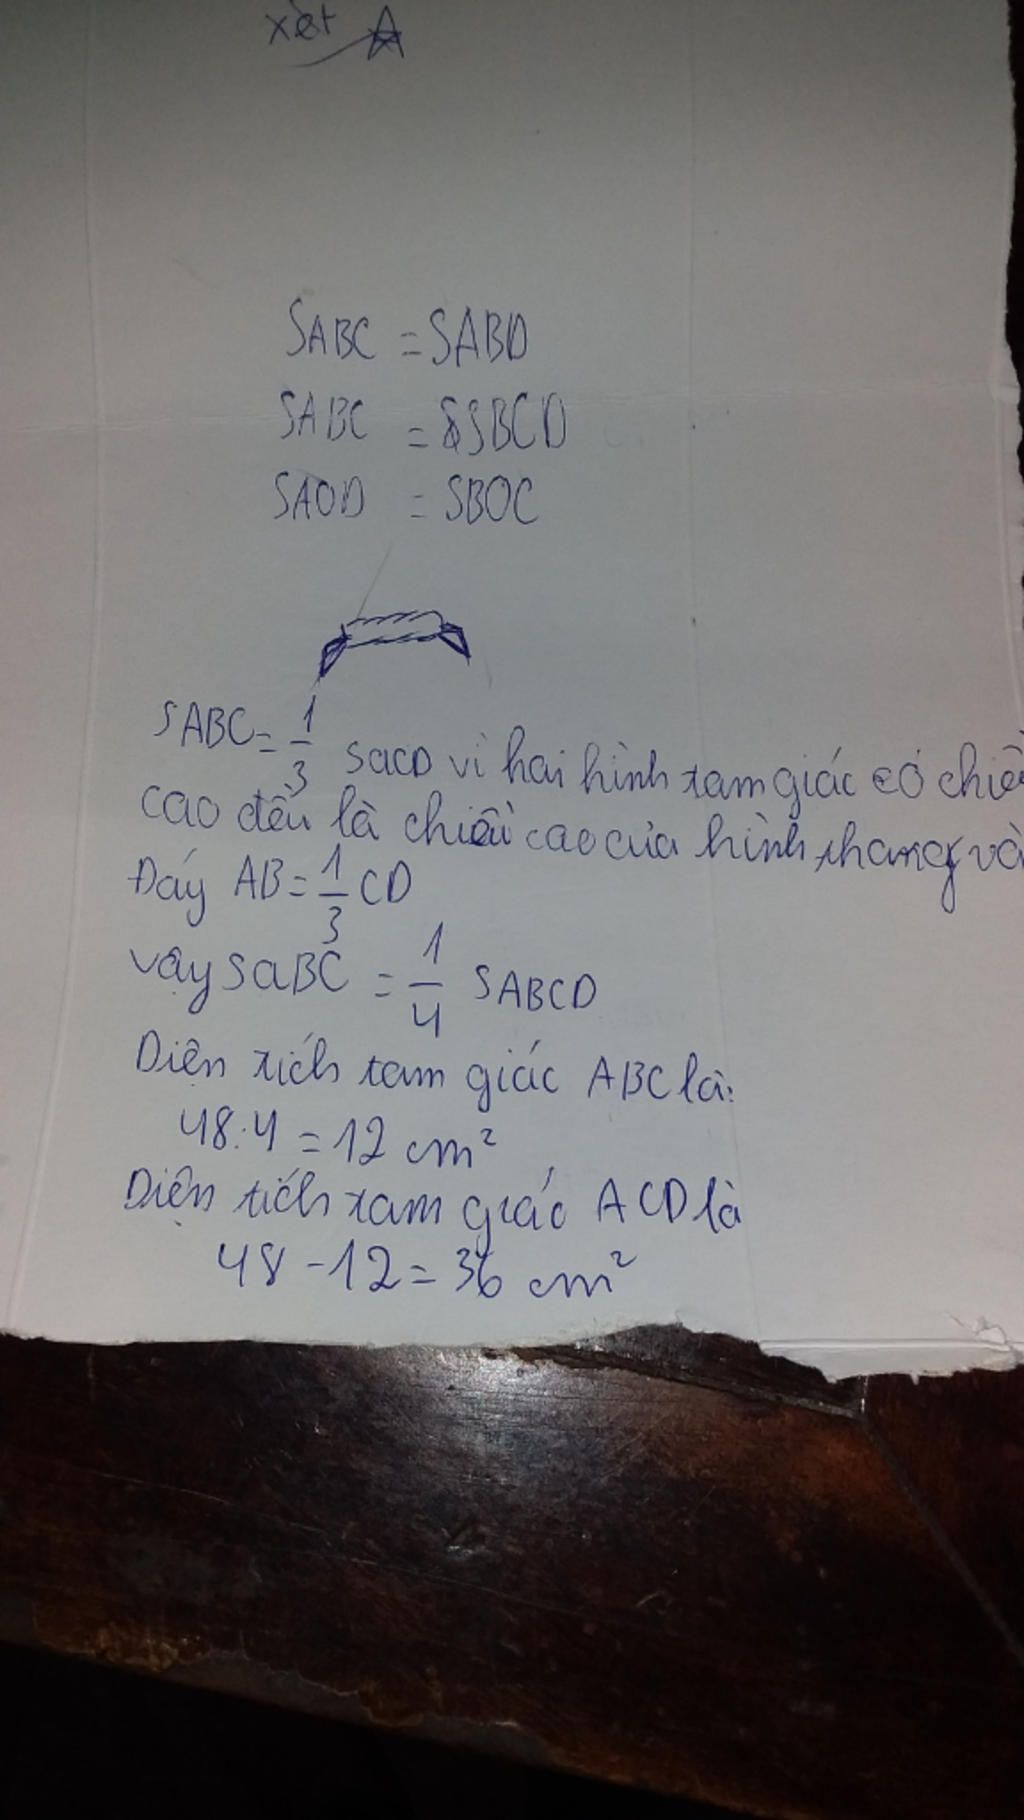 xét A
SABC = SABD
SABC = SBCD
SAOD = SBOC
SABC = 1/3 SACD vì hai hình tam giác có chiề
cao đều là chiều cao của hình thang và
Đáy AB = 1/3 CD
Vậy SaBC = 1/4 SABCD
Diện tích tam giác ABC là:
48:4 = 12 cm²
Diện tích tam giác ACD là
48 - 12 = 36 cm²